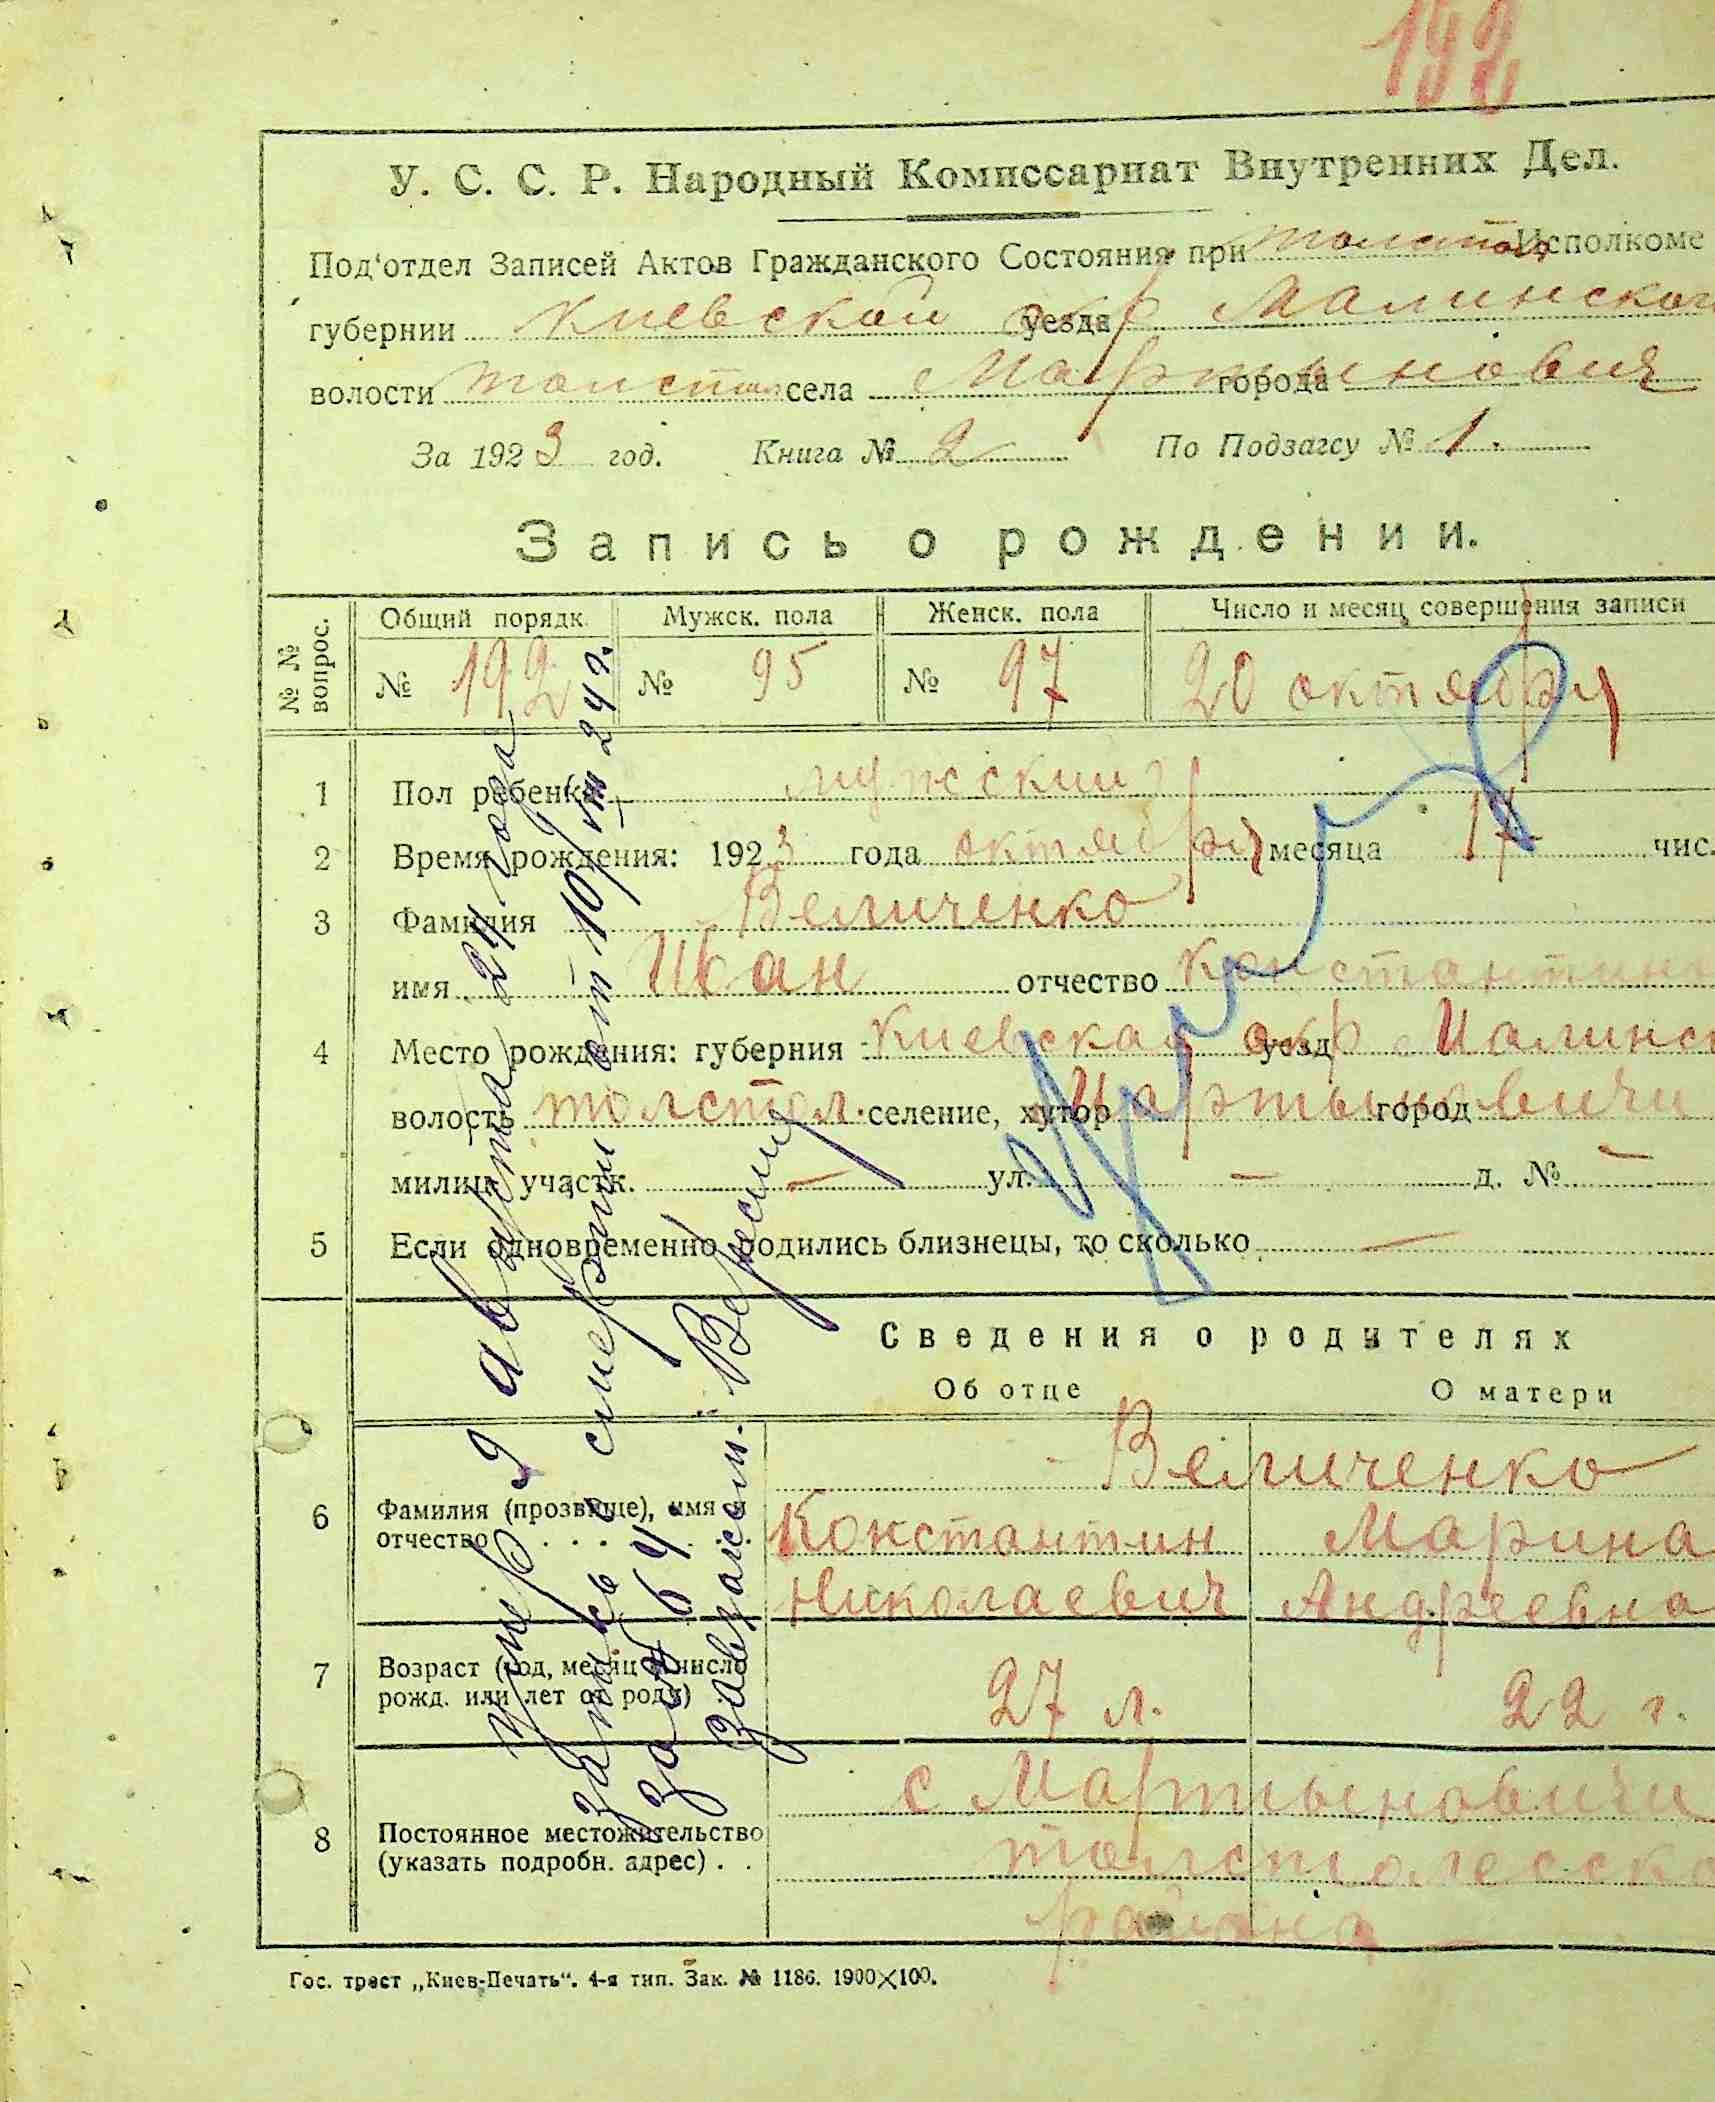 192
У. С. С. Р. Народный Комиссариат Внутренних Дел.
Под'отдел Записей Актов Гражданского Состояния при Толстол Исполкоме
губернии Киевской окр уезда Малинской
волости толстол села Мартыновичи города
За 1923 год. Книга № 2 По Подзагсу № 1.
Запись о рождении.
№ № вопрос. Общий порядк. Мужск. пола Женск. пола Число и месяц совершения записи
№ 192 № 95 № 97 20 октября
1 Пол ребенка мужский
2 Время рождения: 1923 года октября месяца 17 чис.
3 Фамилия Величенко
имя Иван отчество Константин
4 Место рождения: губерния Киевская окр уезд Малинс
волость толстол. селение, хутор Мартыновичи город
милиц участк. — ул. — д. № —
5 Если одновременно родились близнецы, то сколько —
Сведения о родителях
Об отце О матери
Величенко
6 Фамилия (прозвище), имя и Константин Марина
отчество . . . . . . Николаевич Андреевна
7 Возраст (год, месяц и число
рожд. или лет от роду) . 27 л. 22 г.
с Мартыновичи
8 Постоянное местожительство
(указать подробн. адрес) . . толстолесско
района
Гос. трест „Киев-Печать“. 4-я тип. Зак. № 1186. 1900×100.
Умер 9 августа 24 года
запись о смерти от 10/VIII 24 г.
за № 64
Завзагсом:
Умер